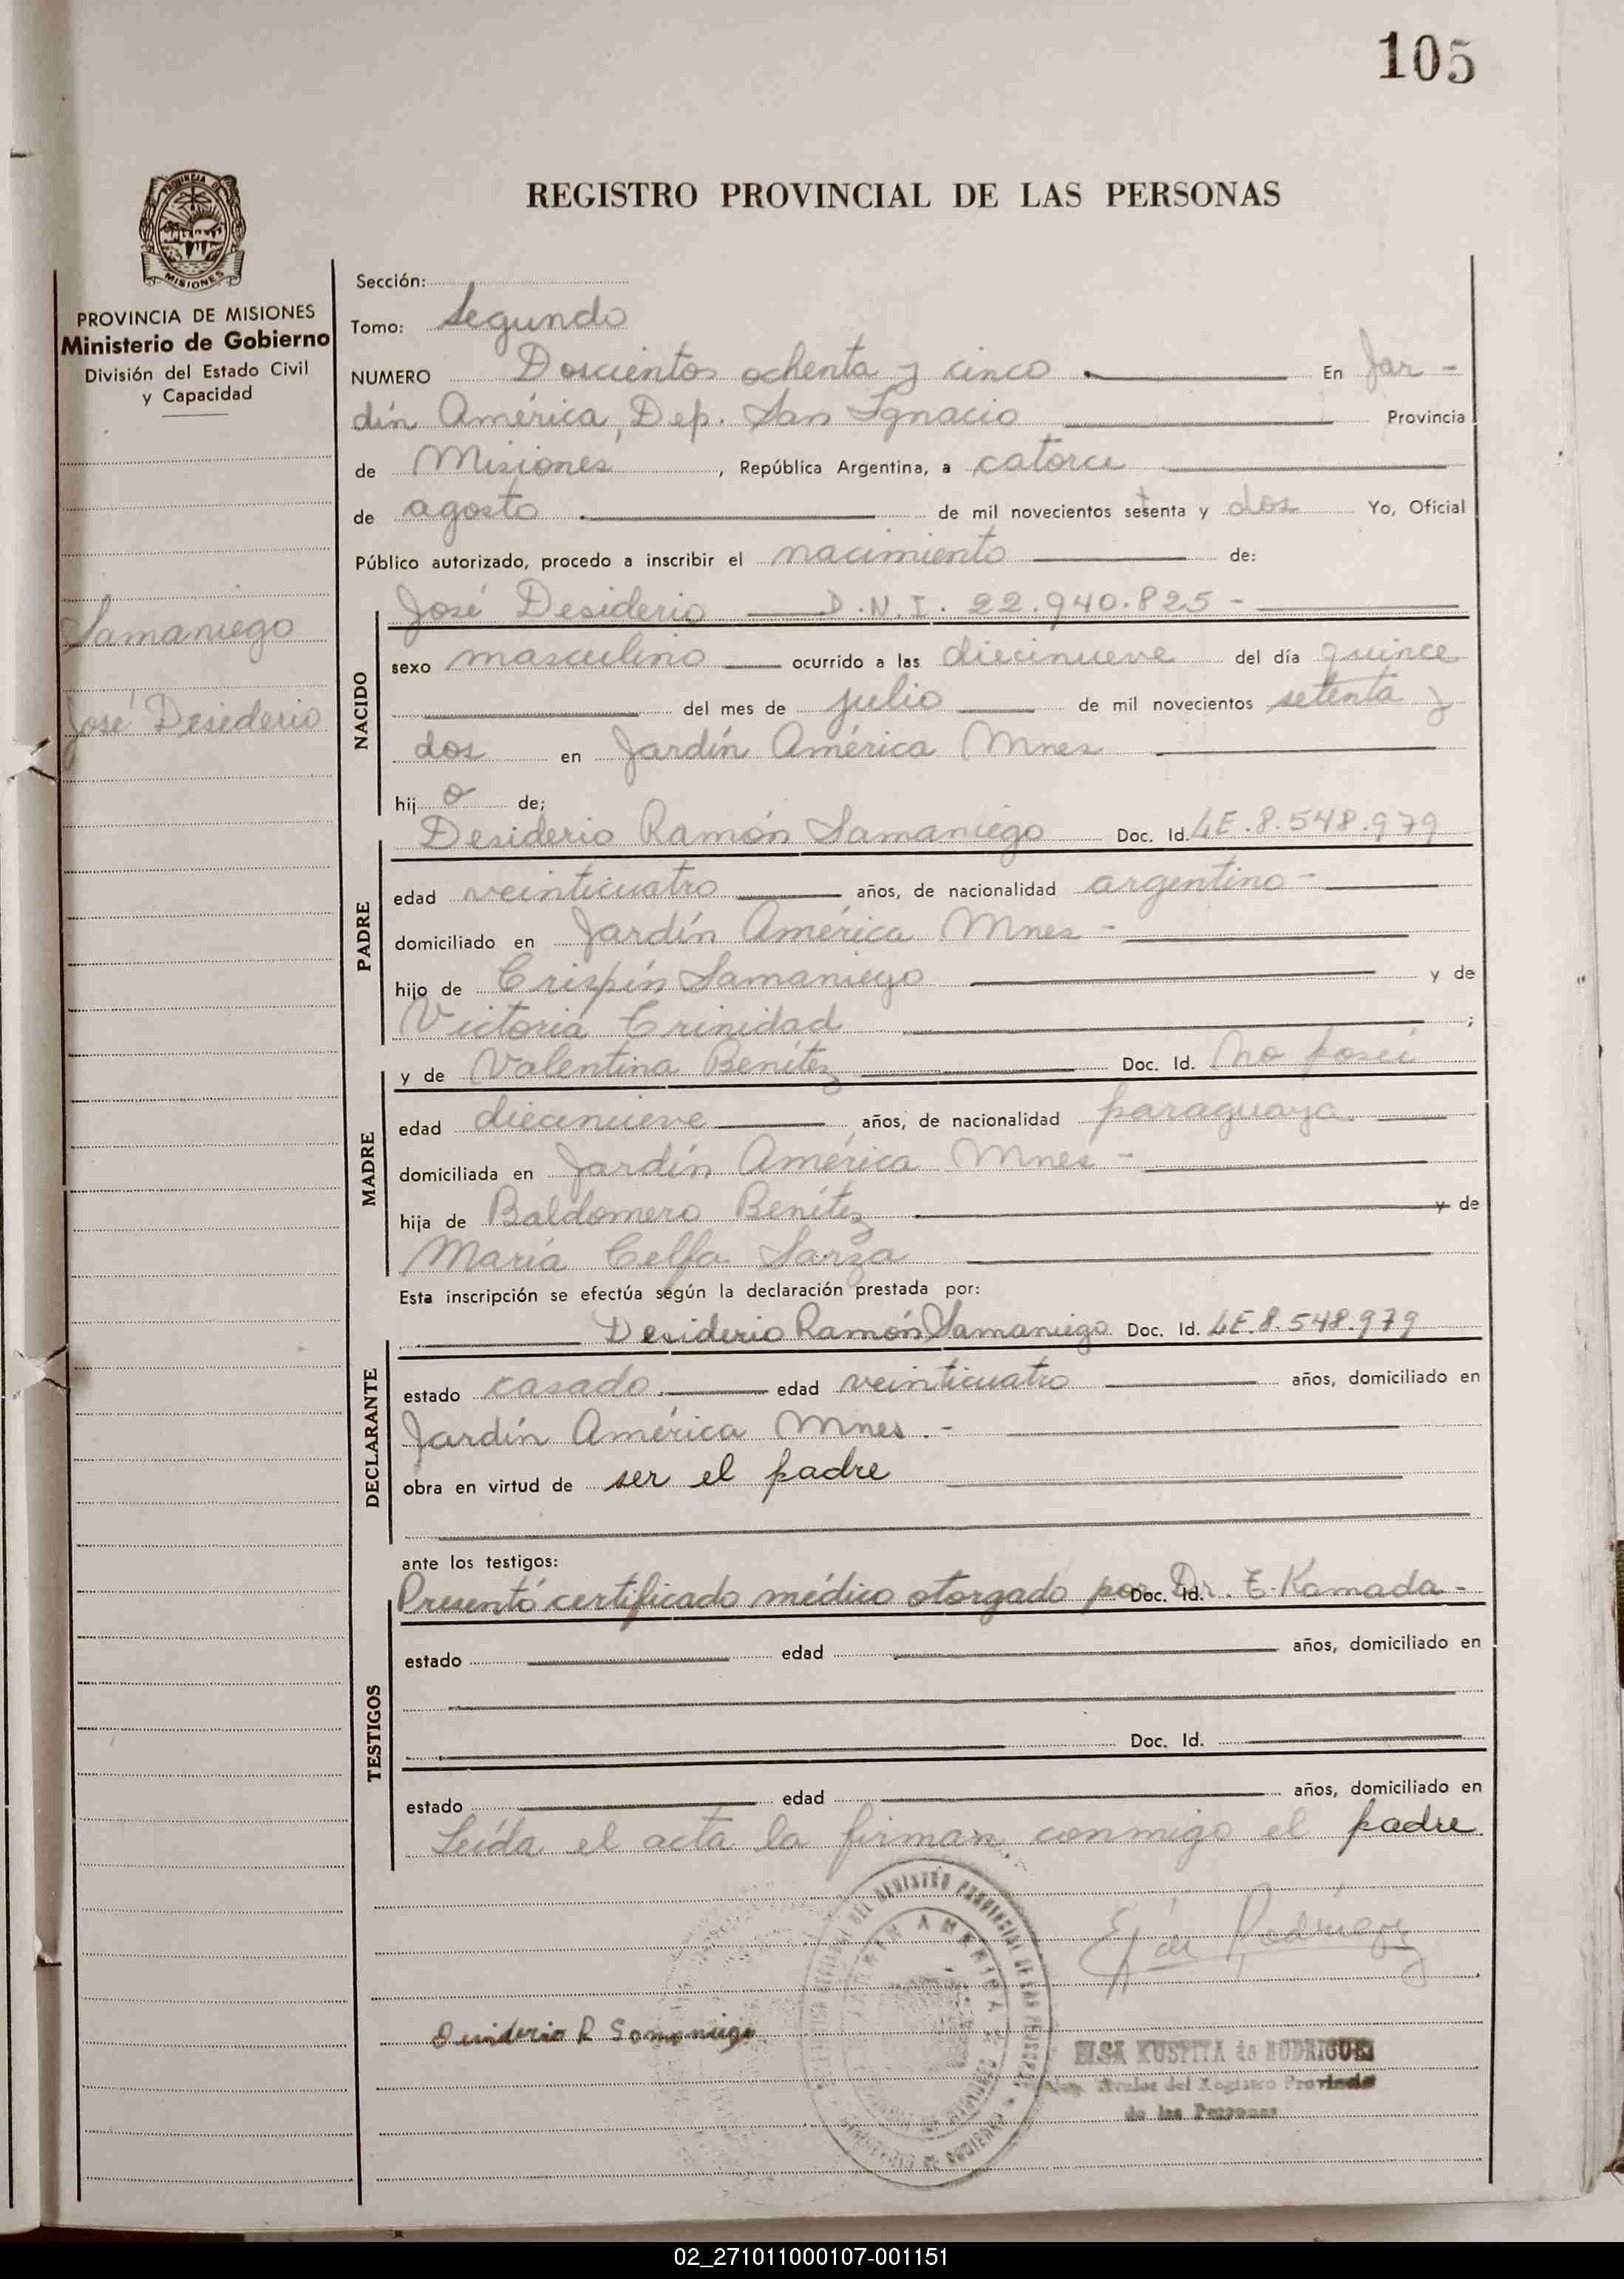 105
REGISTRO PROVINCIAL DE LAS PERSONAS
PROVINCIA DE MISIONES
PROVINCIA DE MISIONES
Ministerio de Gobierno
División del Estado Civil
y Capacidad
Samaniego
José Desiderio
Sección:
Tomo: Segundo
NUMERO Doscientos ochenta y cinco En Jar -
dín América, Dep. San Ignacio Provincia
de Misiones, República Argentina, a catorce
de agosto de mil novecientos setenta y dos Yo, Oficial
Público autorizado, procedo a inscribir el nacimiento de:
José Desiderio D.N.I. 22.940.825 -
NACIDO
sexo masculino ocurrido a las diecinueve del día quince
del mes de julio de mil novecientos setenta y
dos en Jardín América Mnes
hij o de;
Desiderio Ramón Samaniego Doc. Id. LE.8.548.979
PADRE
edad veinticuatro años, de nacionalidad argentino -
domiciliado en Jardín América Mnes -
hijo de Crispín Samaniego y de
Victoria Trinidad ;
y de Valentina Benítez Doc. Id. No poseé
MADRE
edad diecinueve años, de nacionalidad paraguaya
domiciliada en Jardín América Mnes -
hija de Baldomero Benítez y de
María Celfa Sarza
Esta inscripción se efectúa según la declaración prestada por:
Desiderio Ramón Samaniego Doc. Id. LE.8.548.979
DECLARANTE
estado casado edad veinticuatro años, domiciliado en
Jardín América Mnes. -
obra en virtud de ser el padre
ante los testigos:
Presentó certificado médico otorgado por Doc. Id. Dr. E. Kamada -
TESTIGOS
estado edad años, domiciliado en
Doc. Id.
estado edad años, domiciliado en
Leída el acta la firman conmigo el padre
DEL REGISTRO PROVINCIAL DE LAS PERSONAS
JARDIN AMERICA
MINISTERIO DE GOBIERNO
E. de Rodríguez
Desiderio R Samaniego
ELSA KUSPITA de RODRIGUEZ
del Registro Provincial
de las Personas
02_271011000107-001151